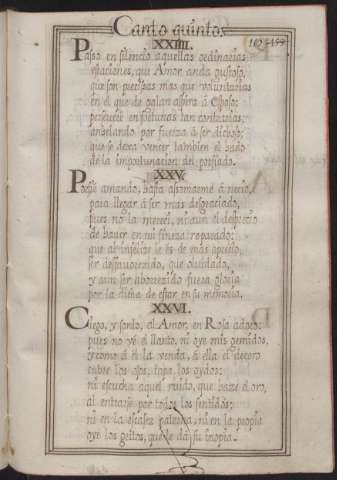 Canto quinto.
XXIIII.
Passo en silencio aquellas ordinarias
estaciones, que Amor anda gustoso,
que son precissas mas que voluntarias
en el que de galan aspira á Esposo:
persevere en fortunas tan contrarias,
anhelando por fuerza á ser dichoso;
que se dexa vencer tambien el hado
de la importunacion del porfiado.
XXV.
Porfie amando, hasta assomarme á necio,
para llegar á ser mas desgraciado,
pues no la mereci, ni aun el desprecio
de haver en mi fineza reparado:
que al infelize le es de más aprecio,
ser desfavorezido, que olvidado,
y aun ser aborrezido fuera gloria
por la dicha de estar en su memoria.
XXVI.
Ciego, y sordo, al Amor, en Rosa adoro;
pues no vé el llanto, ni oye mis gemidos,
y como á él la venda, á ella el decoro
cubre los ojos, tapa los oydos:
ni escucha aquel ruido, que haze el oro,
al entrarse por todos los sentidos;
ni en la escasa paterna, ni en la propia
oye los gritos, que le dá su inopia.